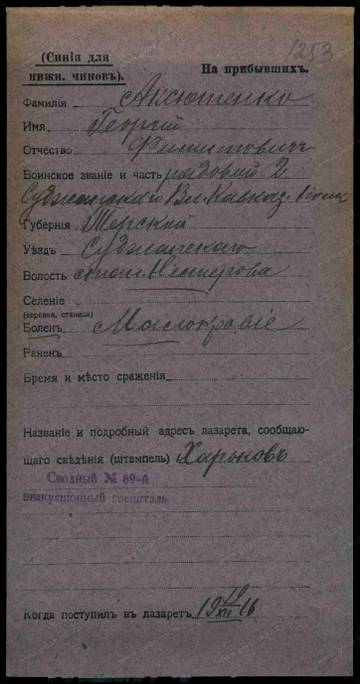 1253
(Синія для
нижн. чиновъ).
На прибывшихъ.
Фамилія Аксютенко
Имя Георгій
Отчество Филиппович
Воинское званіе и часть рядовий 2
Суджанскаго Вл. Кавказ.
Губернія Терской
Уѣздъ Суджанскаго
Волость Нестерова
Селеніе
(деревня, станица)
Боленъ Малокровіе
Раненъ
Время и мѣсто сраженія
Названіе и подробный адресъ лазарета, сообщаю-
щаго свѣдѣнія (штемпель) Харьковъ
Сводный № 89-й
эвакуаціонный госпиталь
Когда поступилъ въ лазаретъ 19 19/XII 16